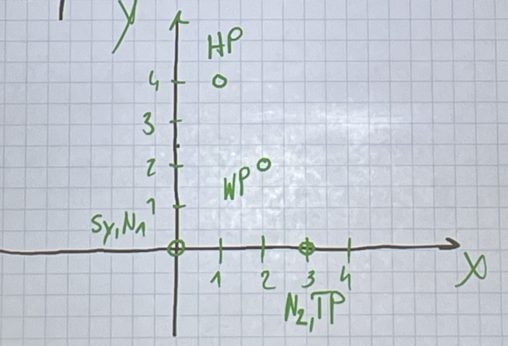 y
HP
4
3
2
WP
1
Sy,N1
1 2 3 4
X
N2,TP